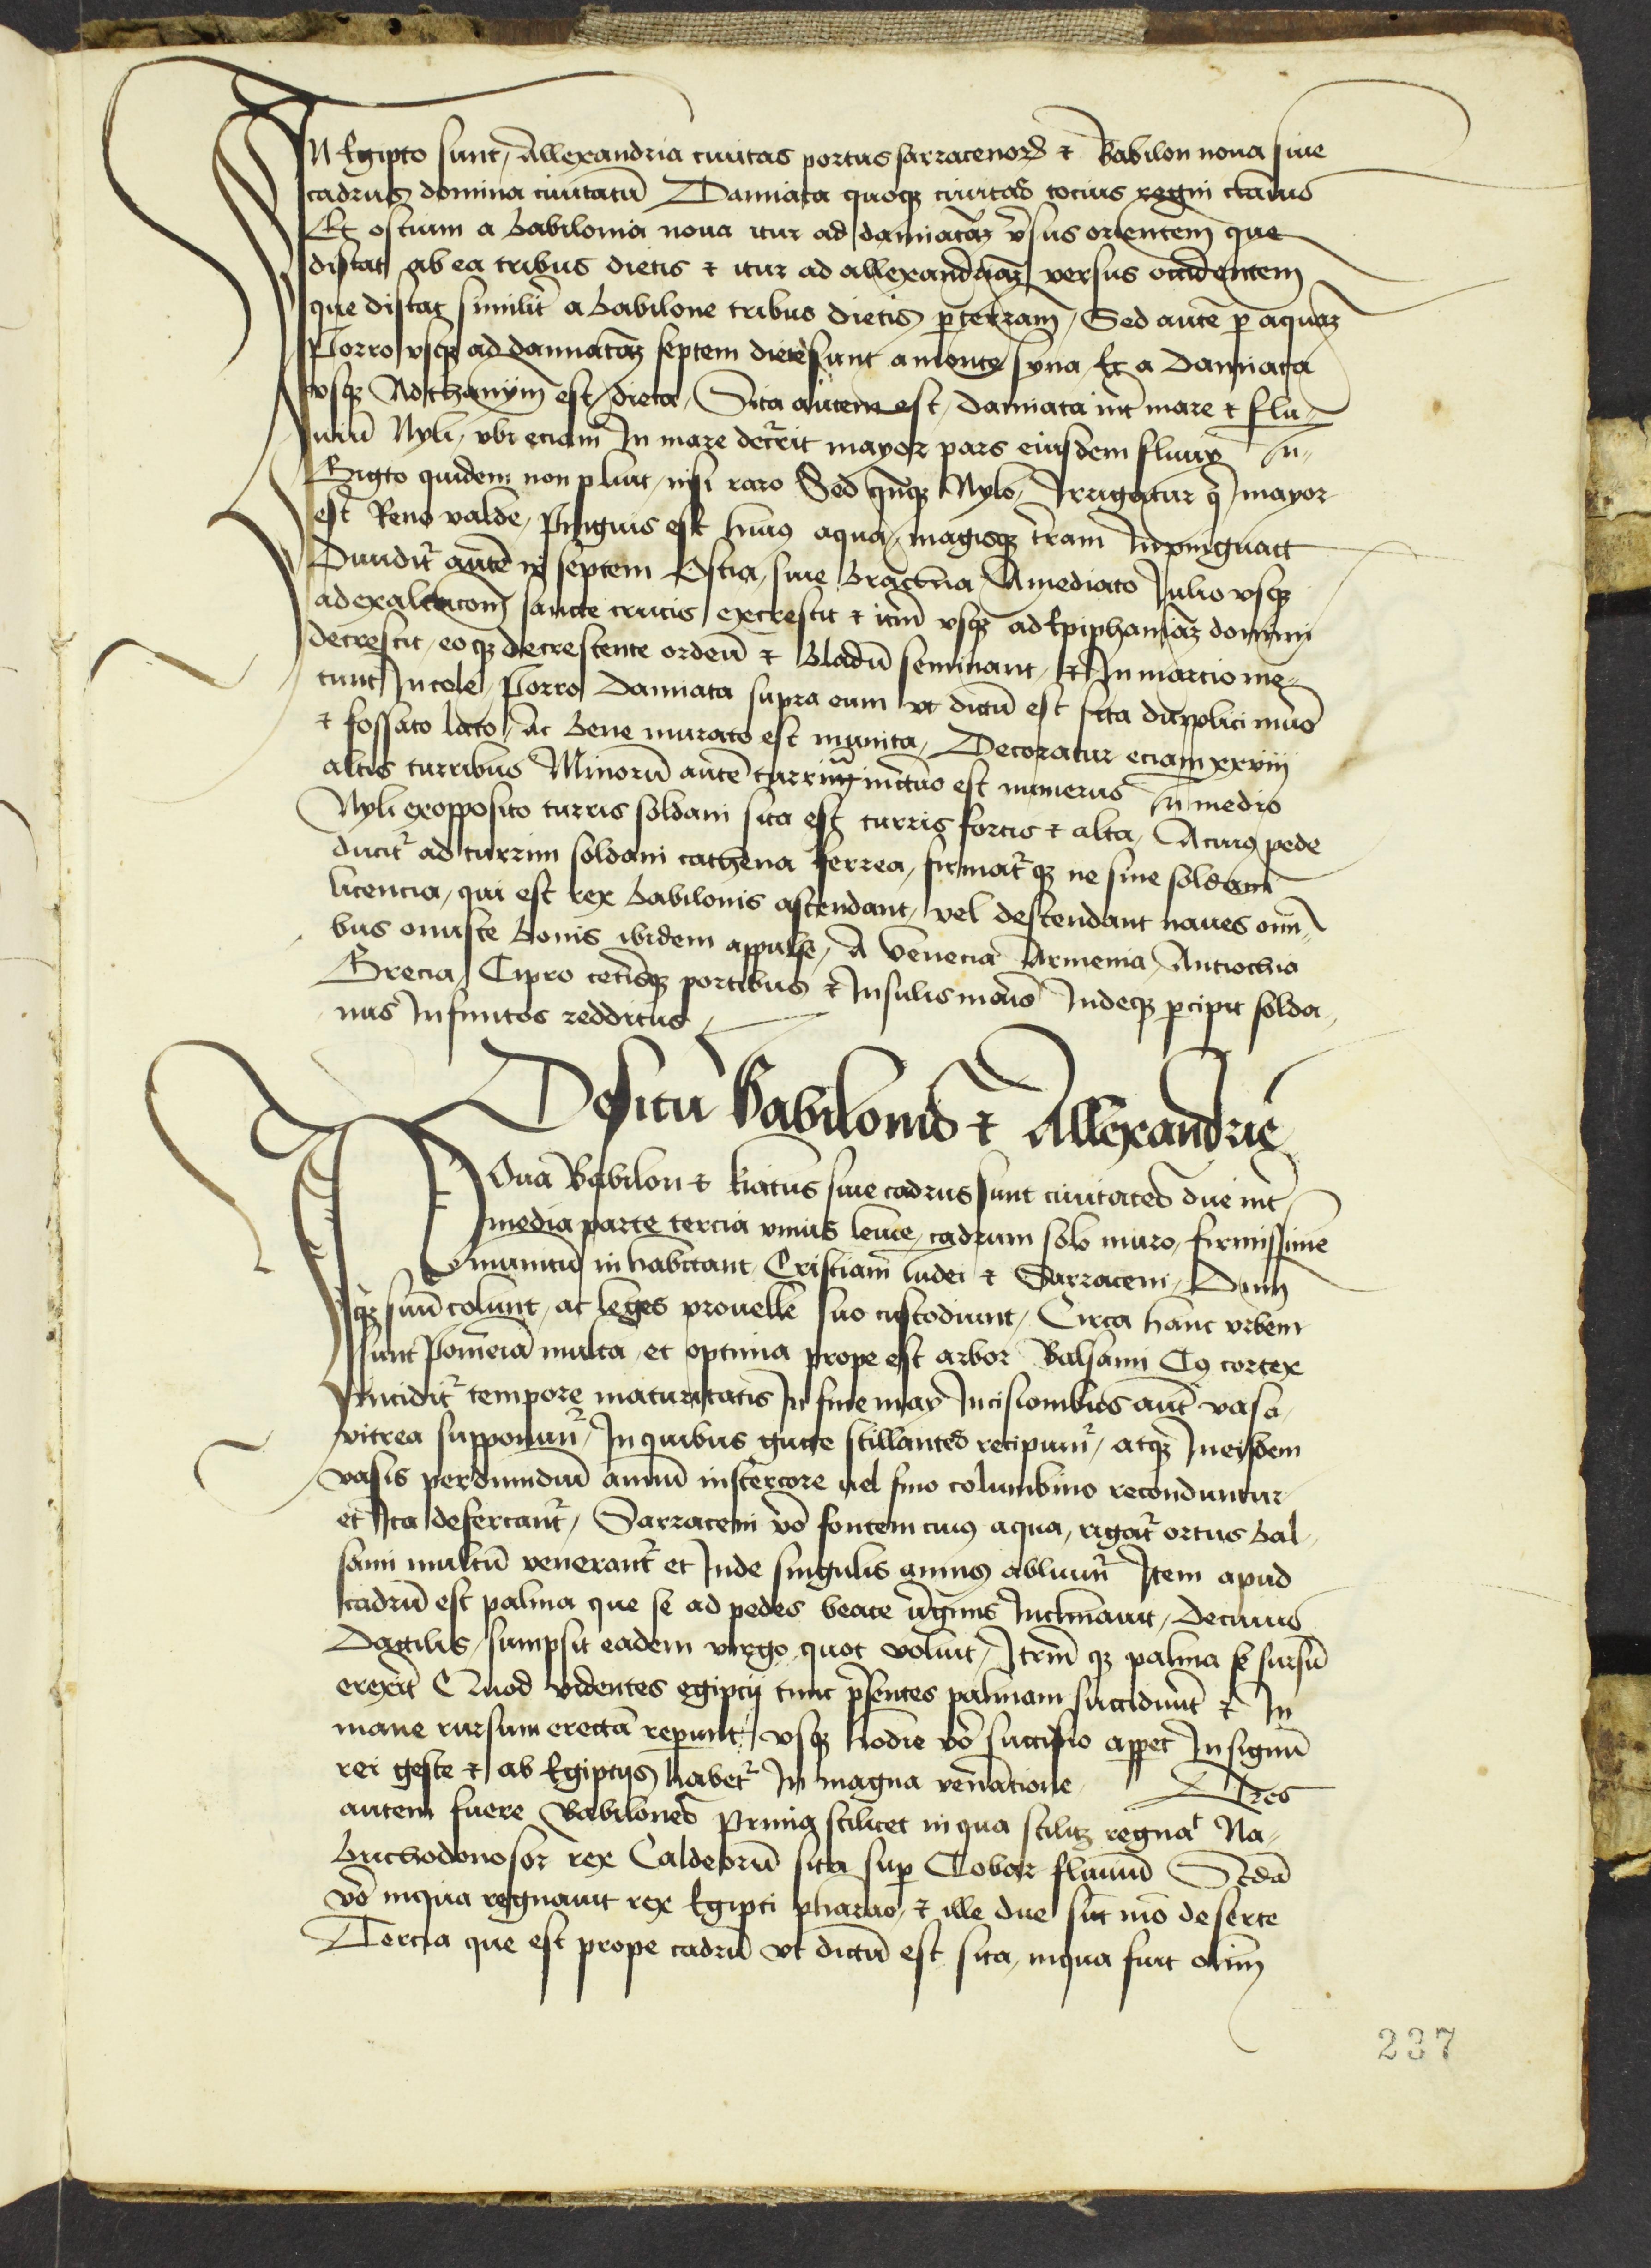 IN Egipto sunt, Allexandria ciuitas portus sarracenorũ et Babilon noua siue
cadrus domina ciuitatũ Damiata quoqꝫ ciuitas tocius regni clauus
Et ostium a babilonia noua itur ad damiatãꝫ ṽsus orientem que
distat ab ea tribus dietis et itur ad allexandriãꝫ versus occidentem
que distat similiť a babilone tribus dietis p terram, Sed autẽ p aquaꝫ
Porro vsqꝫ ad damiatãꝫ septem diete sunt a monte syna, Et a Damiata
vsqꝫ Ad thanym est, dieta, Sita autem est, damiata int̃ mare et flu-
uiũ Nyli, vbi eciam In mare decrrit mayor pars eiusdem fluuÿ In
Egipto quidem non pluit, nisi raro Sed qñqꝫ Nylo, Irrigatur q̃, mayor
est Reno valde, Pinguis est huius aqua, magisqꝫ t̃ram Inpinguatt
Diuidit̃ autẽ in septem Ostia, siue brachia, A mediato Julio vsqꝫ
ad exaltacõm sancte crucis excrescit et itm̃ vsqꝫ ad Epiphaniãꝫ domini
decrescit, eoqꝫ decrescente ordeũ et bladũ seminant, et In marcio me-
tunt Incole, Porro Damiata supra eum vt dictũ est sita dupplici muro
et fossato lato, Ac bene murato est munita, Decoratur eciam xxviij
altis turribus Minorũ autẽ turriũ incertus est numerus In medio
Nyli ex opposito turris soldani sita est turris fortis et alta, A cuius pede
ducit̃ ad turrim soldani cathena ferrea, firmat̃qꝫ ne sine soldani
licencia, qui est rex babilonis ascendant, vel descendant naues omñ-
bus onuste bonis ibidem appulse, A Venecia Armenia, Antiochia
Grecia, Cipro cet̃isqꝫ portibus et Insulis maris Indeqꝫ pcipit solda-
nus Infinitos redditus
De situ Babilonis et Allexandrie
Noua Babilon et kiatus siue cadrus sunt ciuitates due int̃
media parte tercia vnius leuce, cadrum solo muro, firmissime
munitũ inhabitant Cristiani Iudei et Sarraceni, Deum
qꝫ suũ colunt, ac leges pro velle suo custodiunt, Circa hanc vrbem
sunt Pomeria multa, et optima prope est arbor Balsami Cuius cortex
Inciditr̃ tempore maturitatis In fine may Incisionibus aut̃ vasa
vitrea supponunt̃, In quibus gutte stillantes recipiunt̃, atqꝫ In eisdem
vasis per dimidiũ annũ in stercore uel fimo columbino reconduntur
et Ita desercant̃, Sarraceni ṽo fontem cuius aqua, rigat̃ ortus bal-
sami multũ venerant̃ et Inde singulis annis abluunt̃ Item apud
cadrũ est palma que se ad pedes beate ṽginis Inclinauit, De cuius
Dactilis, sumpsit eadem virgo quot voluit, Itrm̃ qꝫ palma se sursũ
erexit Quod videntes egiptij tunc p̃sentes palmam succidunt̃ et In
mane rursum erectã repunt, vsqꝫ hodie ṽo succisio appet Insignũ
rei geste et ab Egiptijs habet̃ In magna veñacione Tres
autem fuere Babilones Prima scilicet in qua scilitꝫ regnat Na-
buchodonosor rex Caldeorũ sita sup Cobar fluuiũ Scdã
ṽo in qua regnauit rex Egipti pharao, et ille due sũt mõ deserte
Tercia que est prope cadrũ vt dictũ est sita, in qua fuit olim
237